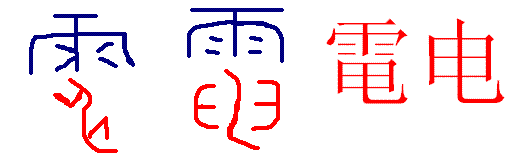 電電電电